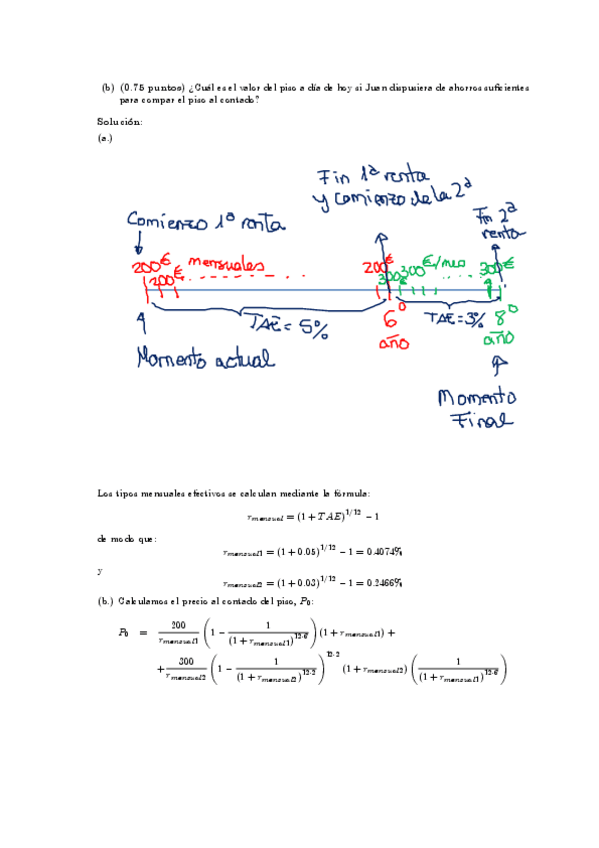 (b) (0.75 puntos) ¿Cuál es el valor del piso a día de hoy si Juan dispusiera de ahorros suficientes
para compar el piso al contado?
Solución:
(a.)
Fin 1ª renta
y comienzo de la 2ª
Comienzo 1ª renta
Fin 2ª
renta
200€ mensuales
200€
200€
300€
300€/mes
300€
TAE = 5%
6º
año
TAE = 3%
8º
año
Momento actual
Momento
Final
Los tipos mensuales efectivos se calculan mediante la fórmula:
r_mensual = (1 + TAE)^{1/12} − 1
de modo que:
r_mensual1 = (1 + 0.05)^{1/12} − 1 = 0.4074%
y
r_mensual2 = (1 + 0.03)^{1/12} − 1 = 0.2466%
(b.) Calculamos el precio al contado del piso, P₀:
P₀ = 200/r_mensual1 (1 − 1/(1 + r_mensual1)^{12·6}) (1 + r_mensual1) +
+ 300/r_mensual2 (1 − 1/(1 + r_mensual2)^{12·2})^{12·2} (1 + r_mensual2) (1/(1 + r_mensual1)^{12·6})